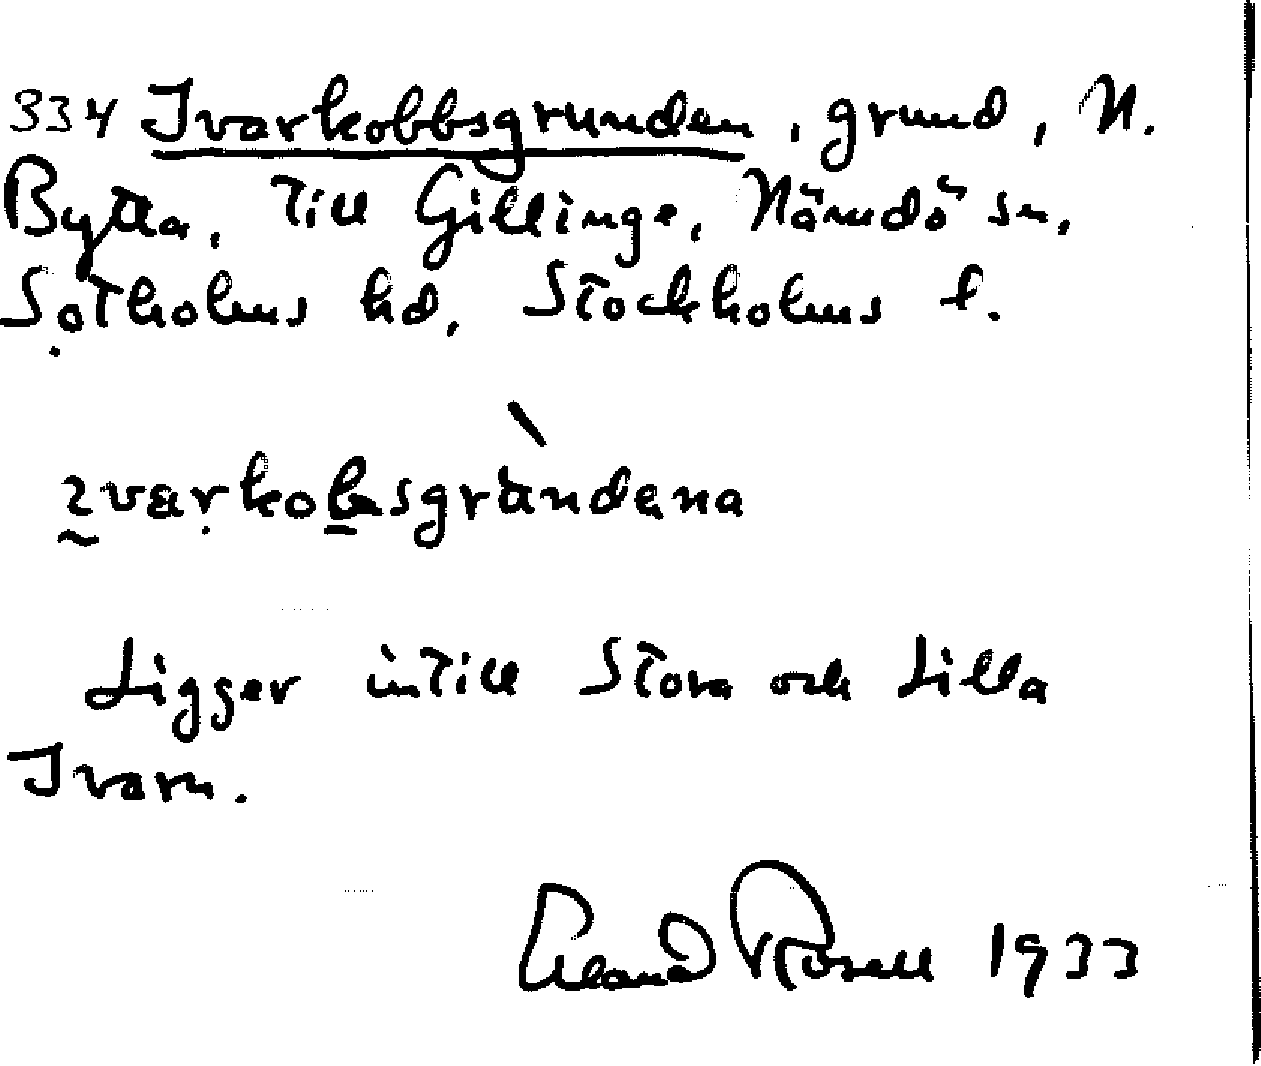 334 Ivarkobbsgrunden, grund, N.
Bytta, till Gillinge, Nämdö sn,
Sotholms hd, Stockholms l.
ɩvarkobsgrùndena
Ligger intill Stora och Lilla
Ivarn.
Rosell 1933